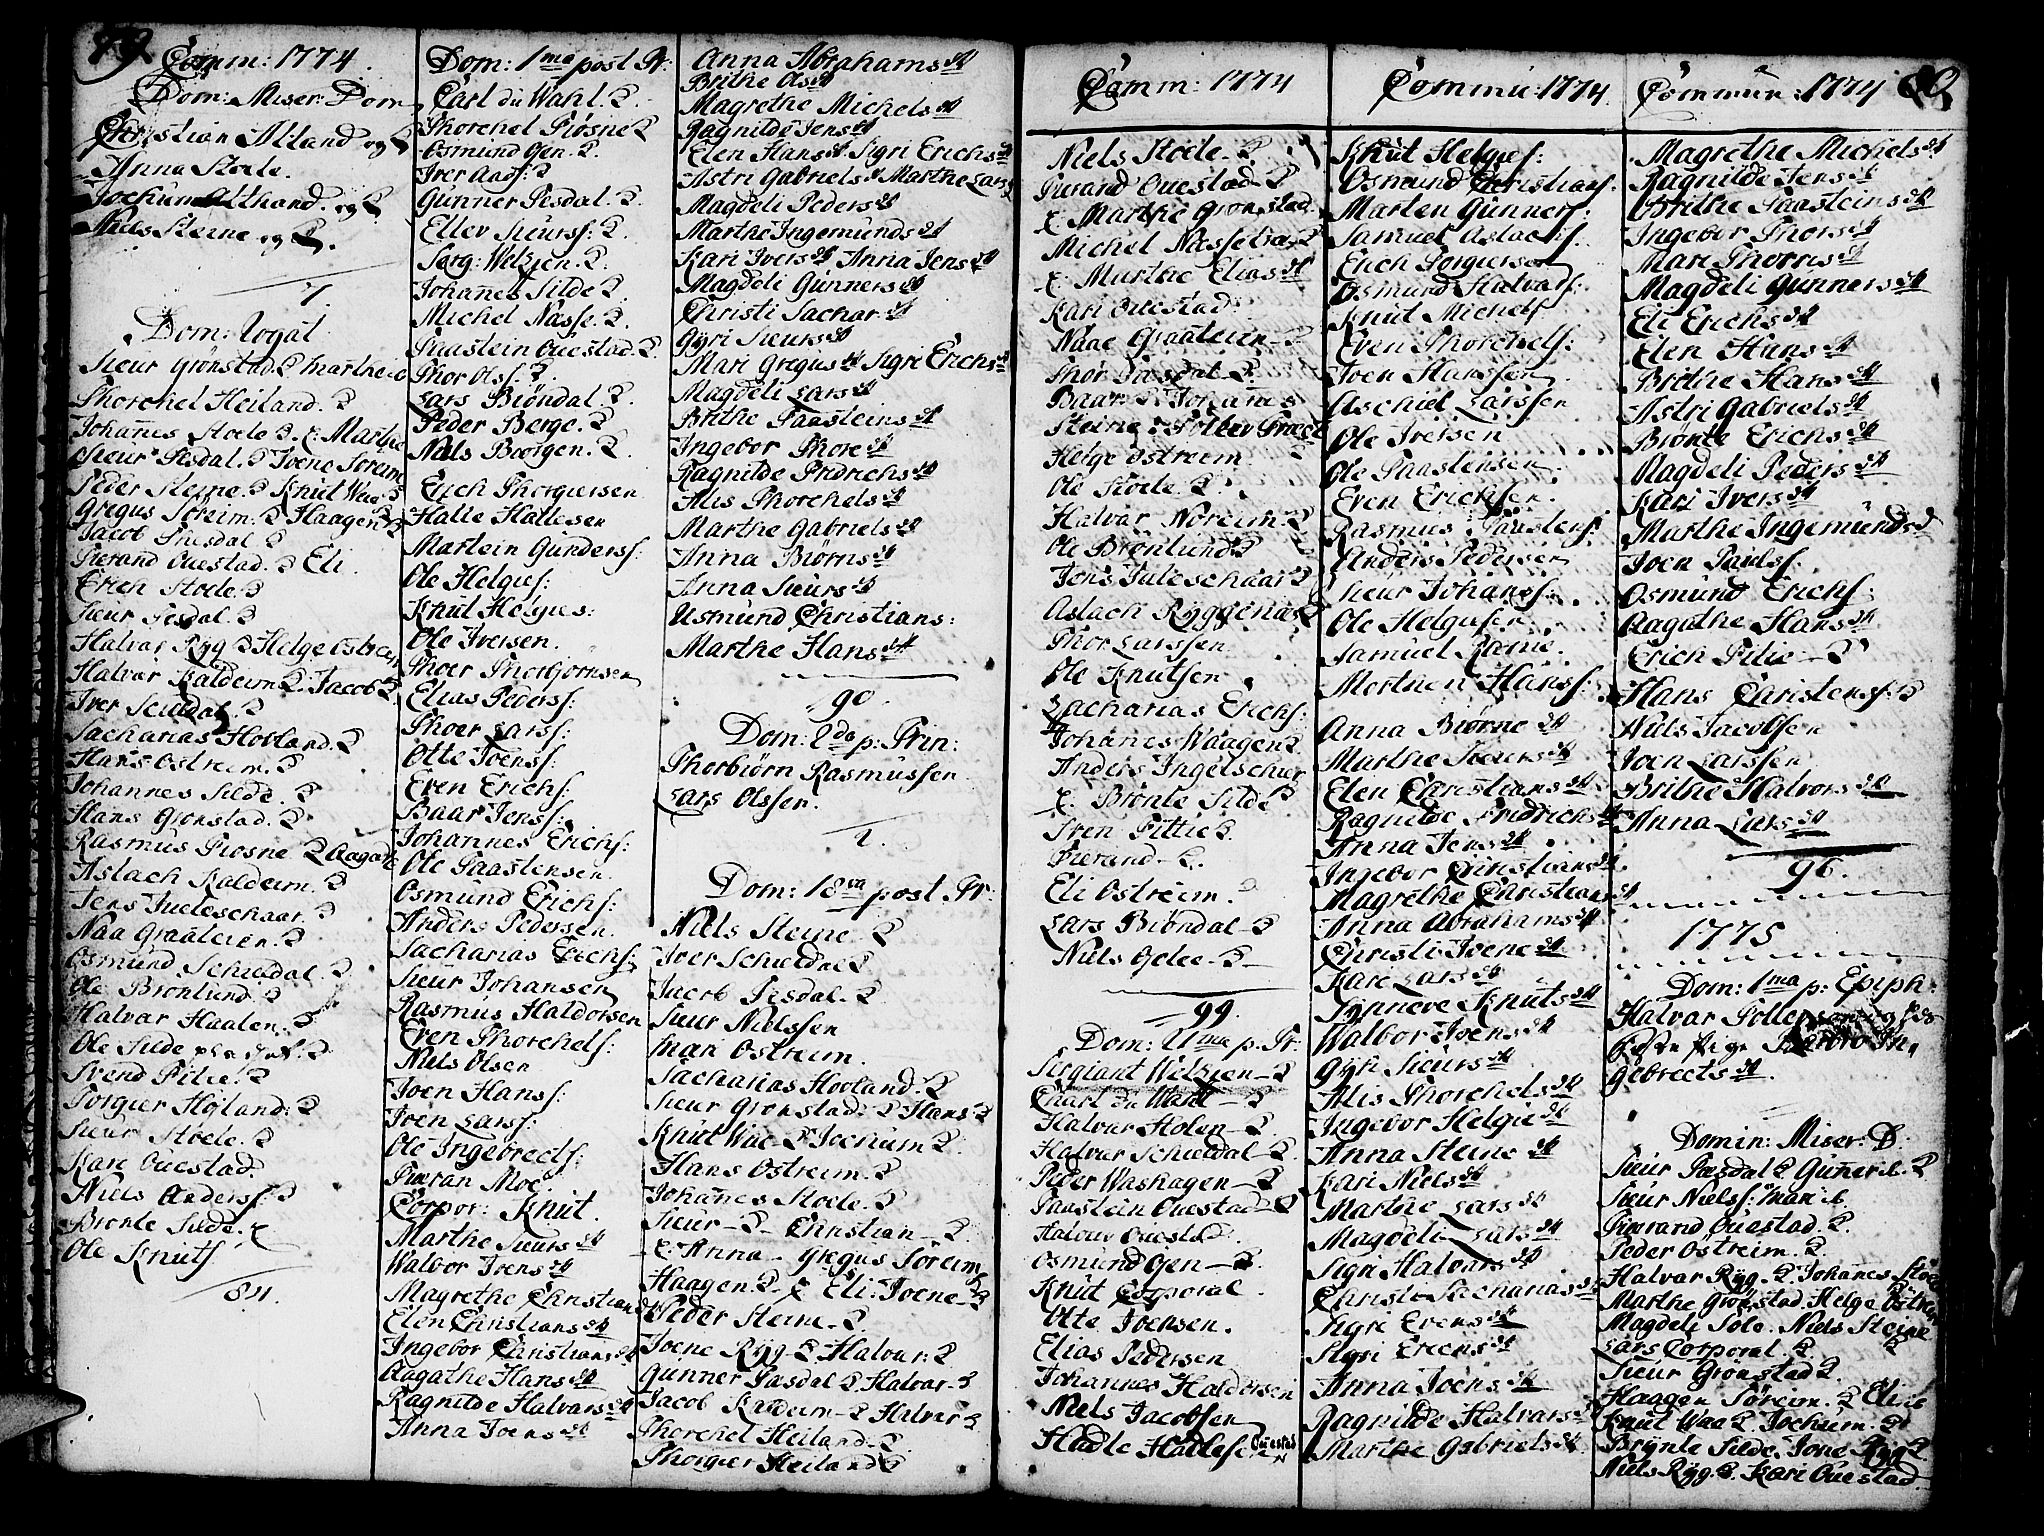 79
Comm: 1774.
Dom: Miser: Dom
Christian Altand og
Anna Stoele.
Jochum Althand. og
Niels Sterne og
7.
Dom: Rogat
Sieur Grönstad. Marthe
Thorchel Heiland.
Johannes Stoele. Marthe
Sieur Pesdal. Joene Soreim
Peder Steine. Knut Waa.
Gregus Soreim. Haagen
Jacob Presdal.
Sierand Ouestad. Eli.
Erich Stoele.
Sieur Pesdal.
Halvar Ryg Helge Ostreim
Halvar Kalderm. Jacob
Iver Scheldal.
Sacharias Hovland.
Hans Ostreim.
Johannes Silde.
Hans Gronstad.
Rasmus Piosne Aagate
Aslach Kalderm.
Jens Jueleschaar.
Naa Graaleien.
Osmund Scheldal.
Ole Bronlund.
Halvar Haalen.
Ole Silde
Svend Pitie.
Torgier Höiland.
Sieur Stoele.
Kari Ouestad.
Niels Andersf.
Bronle Silde.
Ole Knutf.
64.
Dom: 1ma post Tr:
Carl du Wahl.
Thorchel Piosne
Osmund Gjen.
Iver Aasf:
Gunner Pesdal.
Ellev Sieursf:
Serg: Welsien.
Johannes Silde.
Michel Næsse.
Paastein Ouestad.
Thor Olsf.
Lars Biöndal.
Peder Berge.
Niels Biörgen.
Erich Thorgiersen
Halle Hallesen
Martein Gundersf:
Ole Helgief:
Knut Helgies:
Ole Iversen.
Thoer Thorbjornsen
Elias Pedersf:
Thoer Larsf:
Otte Joensf:
Even Erichf:
Baar Jensf:
Johannes Erichf:
Ole Paastensen.
Osmund Erichf:
Anders Pedersen.
Sacharias Erichf:
Sieur Johansen
Rasmus Haldorsen
Even Thorchelf:
Niels Olsen
Joen Hansf:
Joen Larsf:
Ole Ingebrectf:
Pieran Moe
Corpor: Knut.
Marthe Sieurs dt
Walbor Joens dt
Magrethe Christians dt
Elen Christians dt
Ingebor Christians dt
Aagathe Hans dt
Ragnilde Halvars dt
Anna Joens dt
Anna Abrahams dt
Brithe Ols dt
Magrethe Michels dt
Ragnilde Jens dt
Elen Hans dt Sigri Erichs dt
Astri Gabriels dt Marthe Lars
Magdeli Peders dt
Marthe Ingemunds dt
Kari Ivers dt Anna Jens dt
Magdeli Gunners dt
Christi Sachar. dt
Gyri Sieurs dt
Mari Gregus dt Sigri Erichs dt
Magdeli Lars dt
Brithe Paasteins dt
Ingebor Thore dt
Ragnilde Fridrichs dt
Alis Thorchels dt
Marthe Gabriels dt
Anna Biorns dt
Anna Sieurs dt
Usmund Christians:
Marthe Hans dt
90.
Dom: 2da p: Trin:
Thorbiörn Rasmussen
Lars Olssen.
2.
Dom: 18va post Tr:
Niels Steine.
Iver Schieldal
Jacob Pesdal.
Sieur Nielssen
Mari Ostreim.
Sacharias Hovland.
Sieur Gronstad. Hans
Knut Wae Jochum
Hans Ostreim.
Johannes Stoele.
Sieur Christian
Anna Gregus Soreim
Haagen Eli. Joene
Peder Steine.
Joene Ryg Halvar:
Gunner Pasdal Halvar
Jacob Kaldeim Halvar
Thorchel Heiland.
Thorgier Heiland
Comm: 1774
Niels Stoele.
Pierand Ouestad
Marthe Gronstad.
Michel Næssetræ
Marthe Elias dt
Kari Ouestad
Naae Graaleien
Thor Pasdal.
Baar Johannes
Steine: Tollev
Helge Ostreim
Ole Stoele.
Halvar Noreim
Ole Bronlund
Jens Juleschaar
Aslach Ryggenæ
Thor Larssen
Ole Knutsen
Zacharias Erichf:
Johanes Waagen
Anders Ingelschier
Bronle Silde
Sven Pittie.
Pierand.
Eli Ostreim.
Lars Biöndal
Niels Oelee
99.
Dom: 21ma p. Tr:
Sergiant Welsien
Charl du Wahl
Halvar Holen
Halvar Schieldal
Peder Washagen
Paastein Ouestad
Halvar Ouestad.
Osmund Gjen
Knut Corporal.
Otte Joensen.
Elias Pedersen
Johannes Haldorsen
Niels Jacobsen
Hadle Hadlesen Ouestad
Commu: 1774.
Knut Helgief:
Osmund Christiansf.
Marten Gunnersf:
Samuel Aslachf.
Erich Torgiersen
Osmund Halvarsf:
Knut Michelf
Even Thorchelf:
Joen Hanssen
Aschiel Larssen
Ole Iversen
Ole Paastensen
Even Erichsen.
Rasmus Paastensf:
Anders Pedersen
Sieur Johansf:
Ole Helgiesen
Samuel Rame.
Mortnen Hansf:
Anna Biörne dt
Marthe Sieurs dt
Elen Christians dt
Ragnilde Fridrichs dt
Anna Jens dt
Ingebor Christians dt
Magrethe Christians dt
Anna Abrahams dt
Christi Joene dt
Kari Lars dt
Synneve Knuts dt
Walbor Joens dt
Gyri Sieurs dt
Alis Thorchels dt
Ingebor Helgie dt
Anna Steine dt
Kari Niels dt
Marthe Lars dt
Magdeli Lars dt
Sigri Halvars dt
Christi Sacharias dt
Sigri Evens dt
Sigri Ericks dt
Anna Joens dt
Ragnilde Halvars dt
Marthe Gabriels dt
Commun: 1774 80.
Magrethe Michels dt
Ragnilde Jens dt
Brithe Paasteins dt
Ingebor Thors dt
Mari Thorris dt
Magdeli Gunners dt
Eli Erichs dt
Elen Hans dt
Brithe Hans dt
Astri Gabriels dt
Brönte Erichs dt
Magdeli Peders dt
Kari Ivers dt
Marthe Ingemunds d
Joen Paulsf.
Osmund Erichf:
Aagathe Hans dt
Erich Pitie
Hans Christensf:
Niels Jacobsen
Joen Larssen
Brithe Halvors dt
Anna Lars dt
96.
1775
Dom: 1ma p: Epiph:
Halvar Pollersen og
fæste pige Barbro In
gebrects dt
Domin: Miser: D:
Sieur Pasdal Gunner
Sieur Nielsf: Mari
Pierand Ouestad.
Peder Östreim.
Halvar Ryg. Johanes Stöe
Marthe Gröestad. Helge Ostreim
Magdeli Sole. Niels Steine
Lars Corporal.
Sieur Grönstad.
Haagen Söreim. Eli
Knut Waa Jochum.
Brynle Silde. Jone Ryg
Niels Ryg. Kari Ouestad